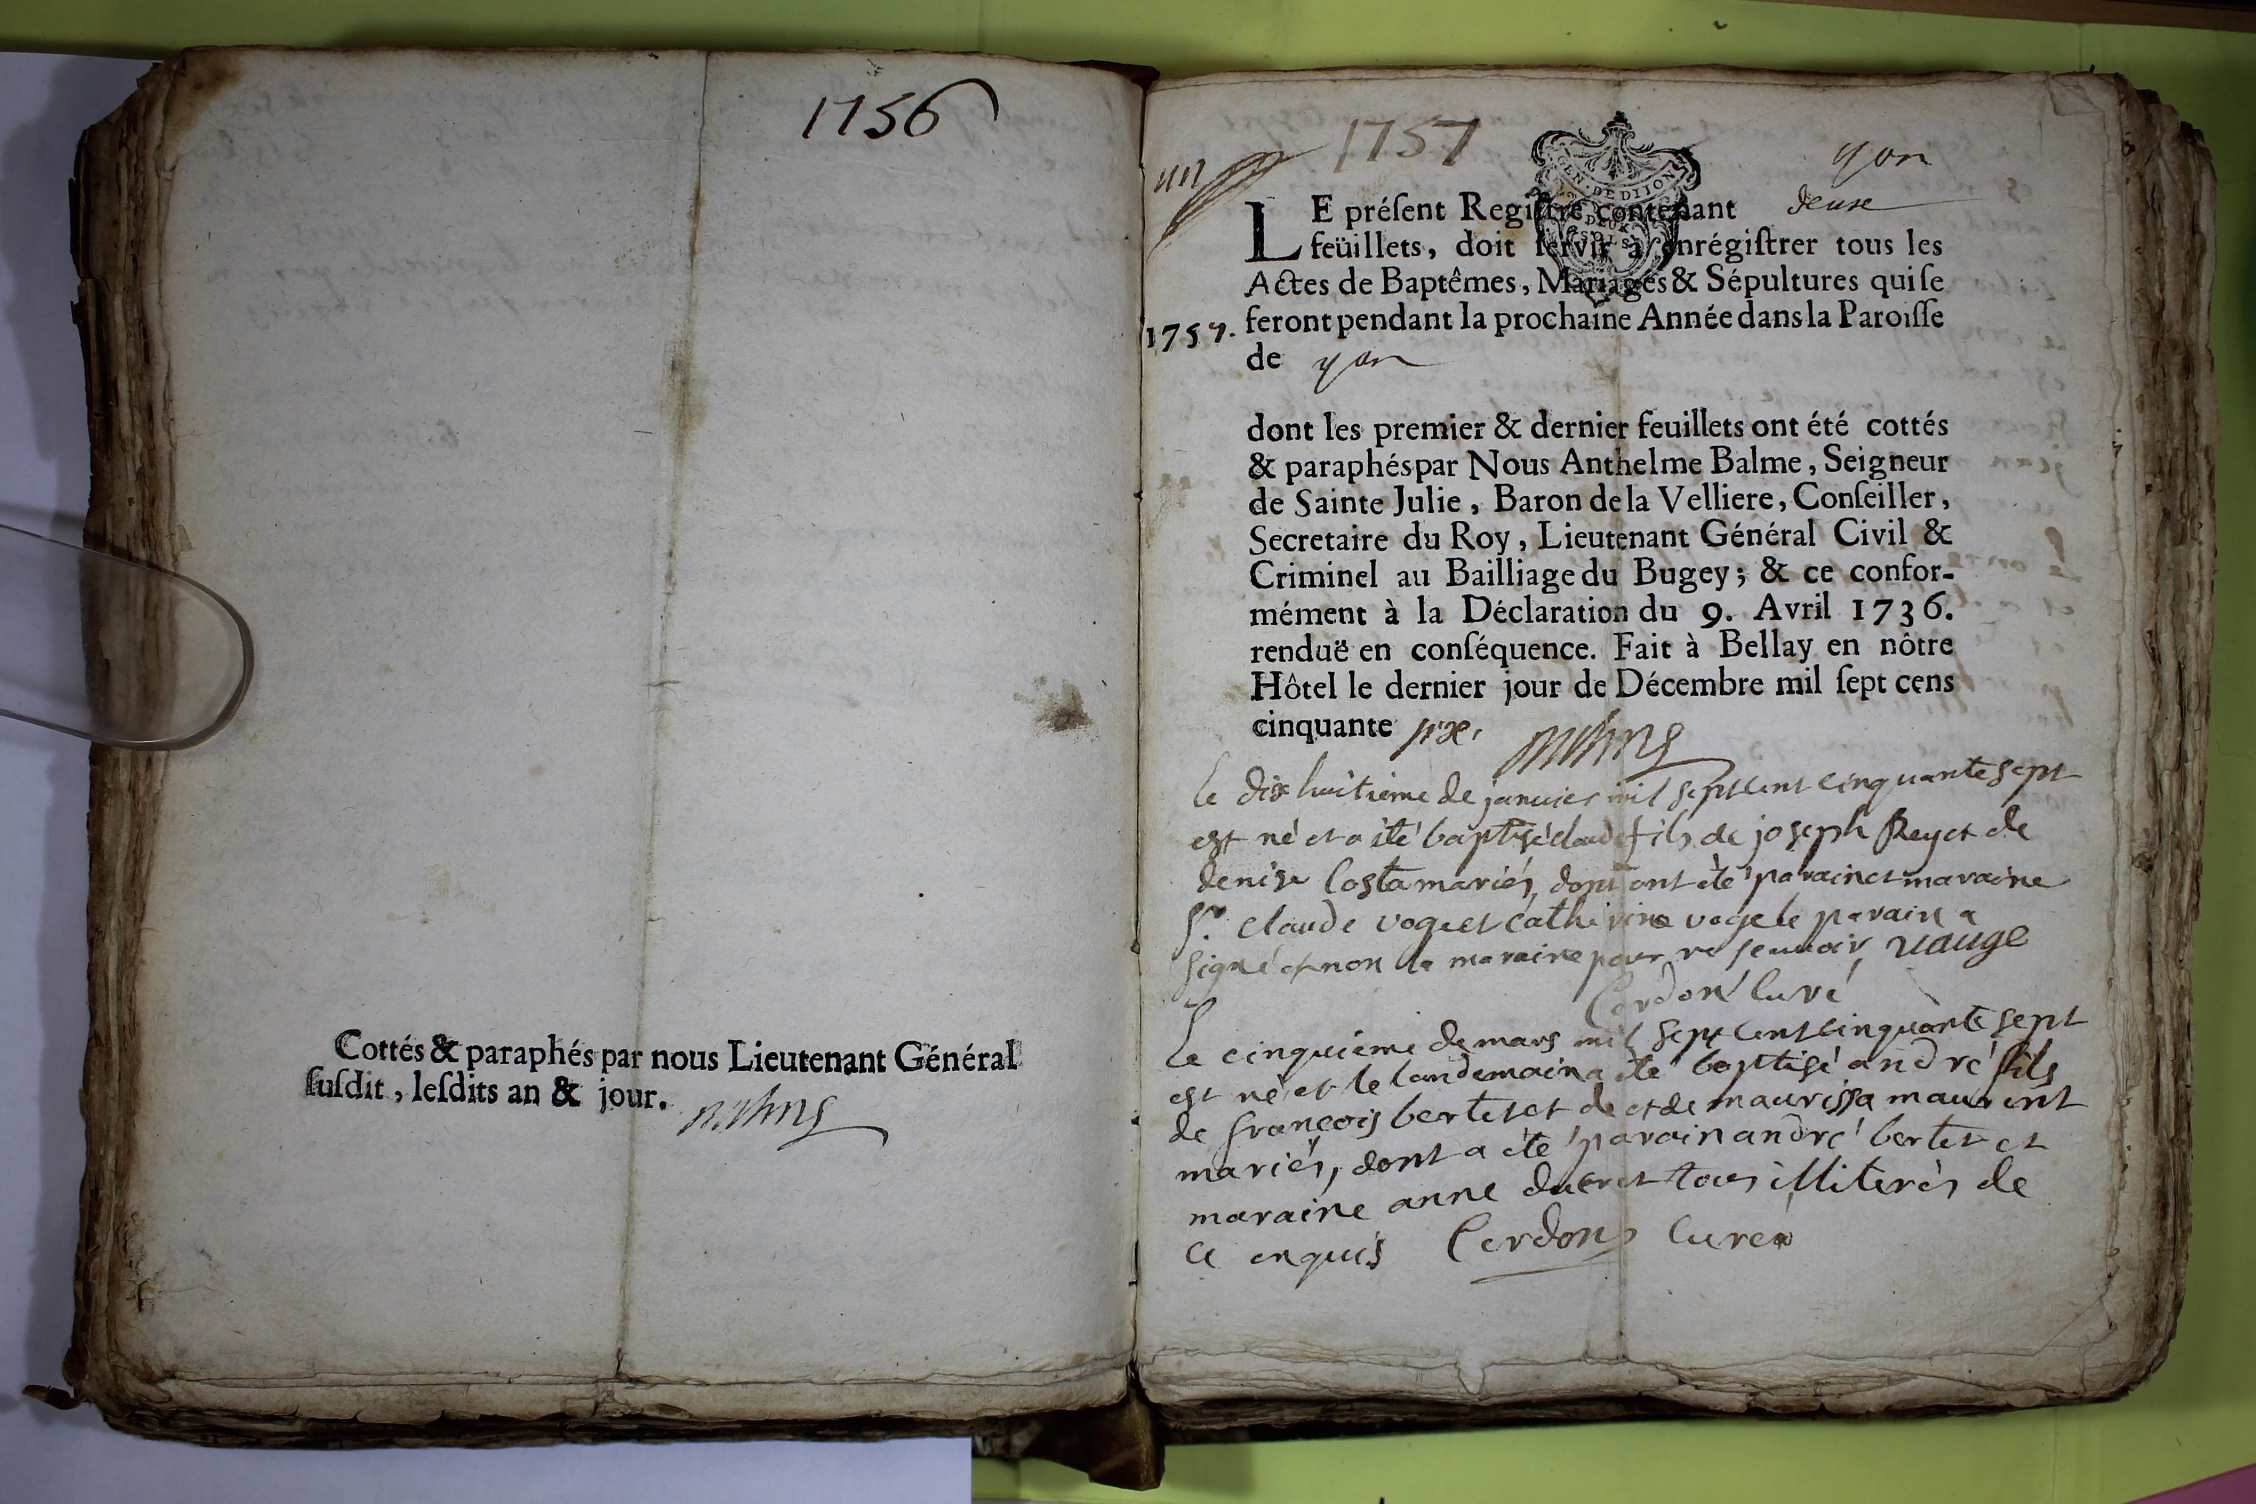 1756
Cottés & paraphés par nous Lieutenant Général
ſuſdit, leſdits an & jour.
1757
yon
GEN · DE DIJON
DEUX
SOLS
LE préſent Regiſtre contenant deux
feüillets, doit ſervir à enrégiſtrer tous les
Actes de Baptêmes, Mariages & Sépultures qui ſe
1757. feront pendant la prochaine Année dans la Paroiſſe
de yon
dont les premier & dernier feuillets ont été cottés
& paraphés par Nous Anthelme Balme, Seigneur
de Sainte Julie, Baron de la Velliere, Conſeiller,
Secretaire du Roy, Lieutenant Général Civil &
Criminel au Bailliage du Bugey; & ce confor-
mément à la Déclaration du 9. Avril 1736.
renduë en conſéquence. Fait à Bellay en nôtre
Hôtel le dernier jour de Décembre mil ſept cens
cinquante six.
le dix huitieme de janvier mil sept cent cinquante sept
est né et a été baptisé claude fils de joseph Rey et de
denise Costa mariés, dont ont été parain et maraine
Sr. claude voge et Catherine voge le parain a
signé et non la maraine pour ne scavoir vauge
Cerdon Curé
Le cinquieme de mars mil sept cent cinquante sept
est né et le landemain a été baptisé andré fils
de françois bertet et de et de maurissa maurint
mariés, dont a été parain andré bertet et
maraine anne ducret tous illiterés de
ce enquis Cerdon Curé